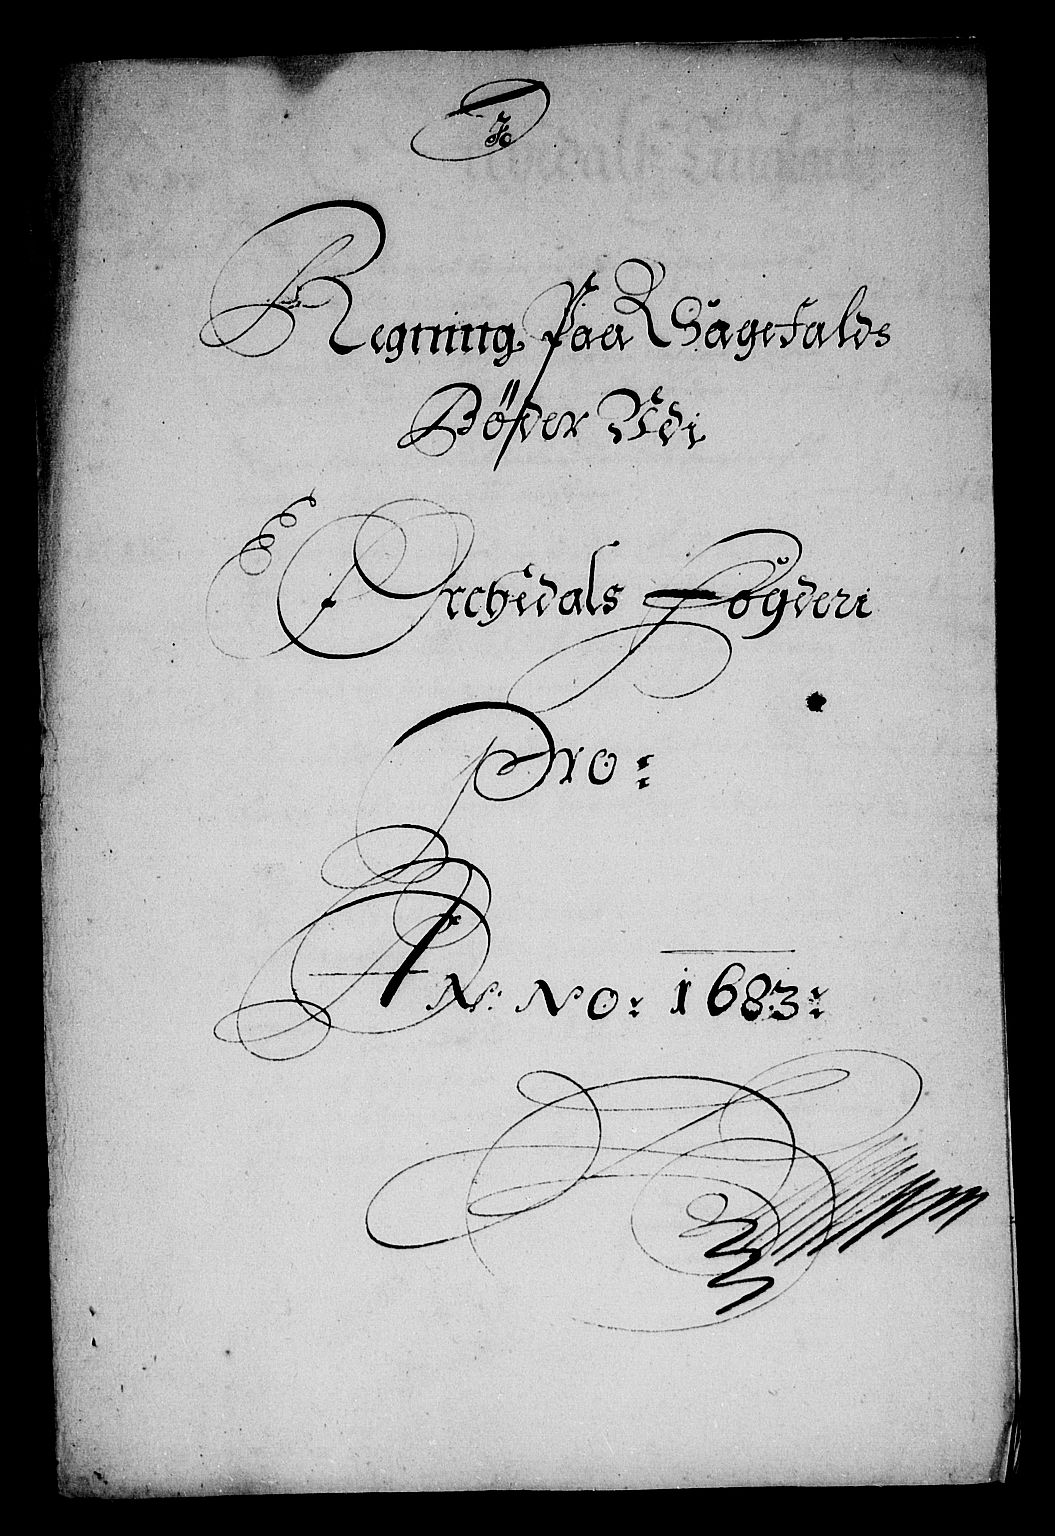 Regning Paa Sagefalds
Böder Udi
Orchedals Fögderi
Pro:
AN: NO: 1683: